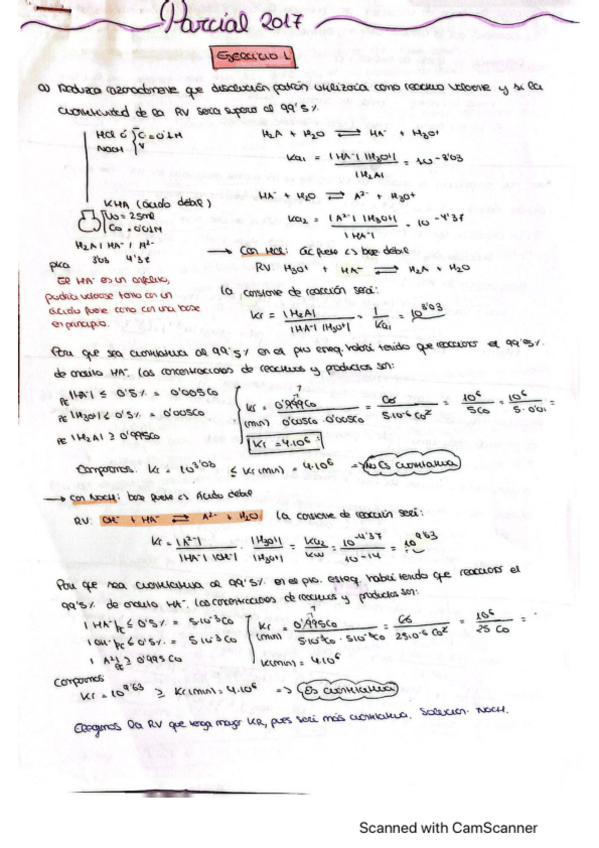 Parcial 2017
Ejercicio 1
a) Deduzca razonadamente que disolución patrón utilizaría como reactivo valorante y si la
cuantitividad de la RV sería superior al 99'5%
HCl ó C = 0'1M
NaOH V
H₂A + H₂O ⇌ HA⁻ + H₃O⁺
Ka₁ = |HA⁻| |H₃O⁺| / |H₂A| = 10^-3'03
HA⁻ + H₂O ⇌ A²⁻ + H₃O⁺
Ka₂ = |A²⁻| |H₃O⁺| / |HA⁻| = 10^-4'37
KHA (ácido débil)
V₀ = 25ml
C₀ = 0'01M
H₂A | HA⁻ | A²⁻
3'03 4'37
pKa
→ Con HCl: ác fuerte base débil
RV: H₃O⁺ + HA⁻ ⇌ H₂A + H₂O
El HA⁻ es un anfolito,
podría valorarse tanto con un
ácido fuerte como con una base
en principio.
La constante de reacción será:
Kr = |H₂A| / |HA⁻| |H₃O⁺| = 1 / Ka₁ = 10^3'03
Para que sea cuantitativa al 99'5% en el pto equiv. habrá tenido que reaccionar el 99'5%
de anolito HA⁻. Las concentraciones de reactivos y productos son:
PE |HA⁻| ≤ 0'5% = 0'005C₀
PE |H₃O⁺| ≤ 0'5% = 0'005C₀
PE |H₂A| ≥ 0'995C₀
Kr (min) = 0'995C₀ / 0'005C₀ · 0'005C₀
Kr = 4·10⁶
Comparamos: Kr = 10^3'03 ≤ Kr(min) = 4·10⁶ ⇒ No Es cuantitativa
→ Con NaOH: base fuerte ácido débil
RV: OH⁻ + HA⁻ ⇌ A²⁻ + H₂O La constante de reacción será:
Kr = |A²⁻| / |HA⁻| |OH⁻| · |H₃O⁺| / |H₃O⁺| = Ka₂ / Kw = 10^-4'37 / 10^-14 = 10^9'63
Para que sea cuantitativa al 99'5% en el pto. equiv. habrá tenido que reaccionar el
99'5% de anolito HA⁻. Las concentraciones de reactivos y productos son:
|HA⁻|PE ≤ 0'5% = 5·10⁻³C₀
|OH⁻|PE ≤ 0'5% = 5·10⁻³C₀
|A²⁻|PE ≥ 0'995C₀
Kr (min) = 0'995C₀ / 5·10⁻³C₀ · 5·10⁻³C₀ = 10⁶ / 25 C₀ =
Kr(min) = 4·10⁶
Comparamos
Kr = 10^9'63 ≥ Kr(min) = 4·10⁶ ⇒ Es cuantitativa
Elegimos la RV que tenga mayor KR, pues será más cuantitativa. Solución: NaOH.
Scanned with CamScanner